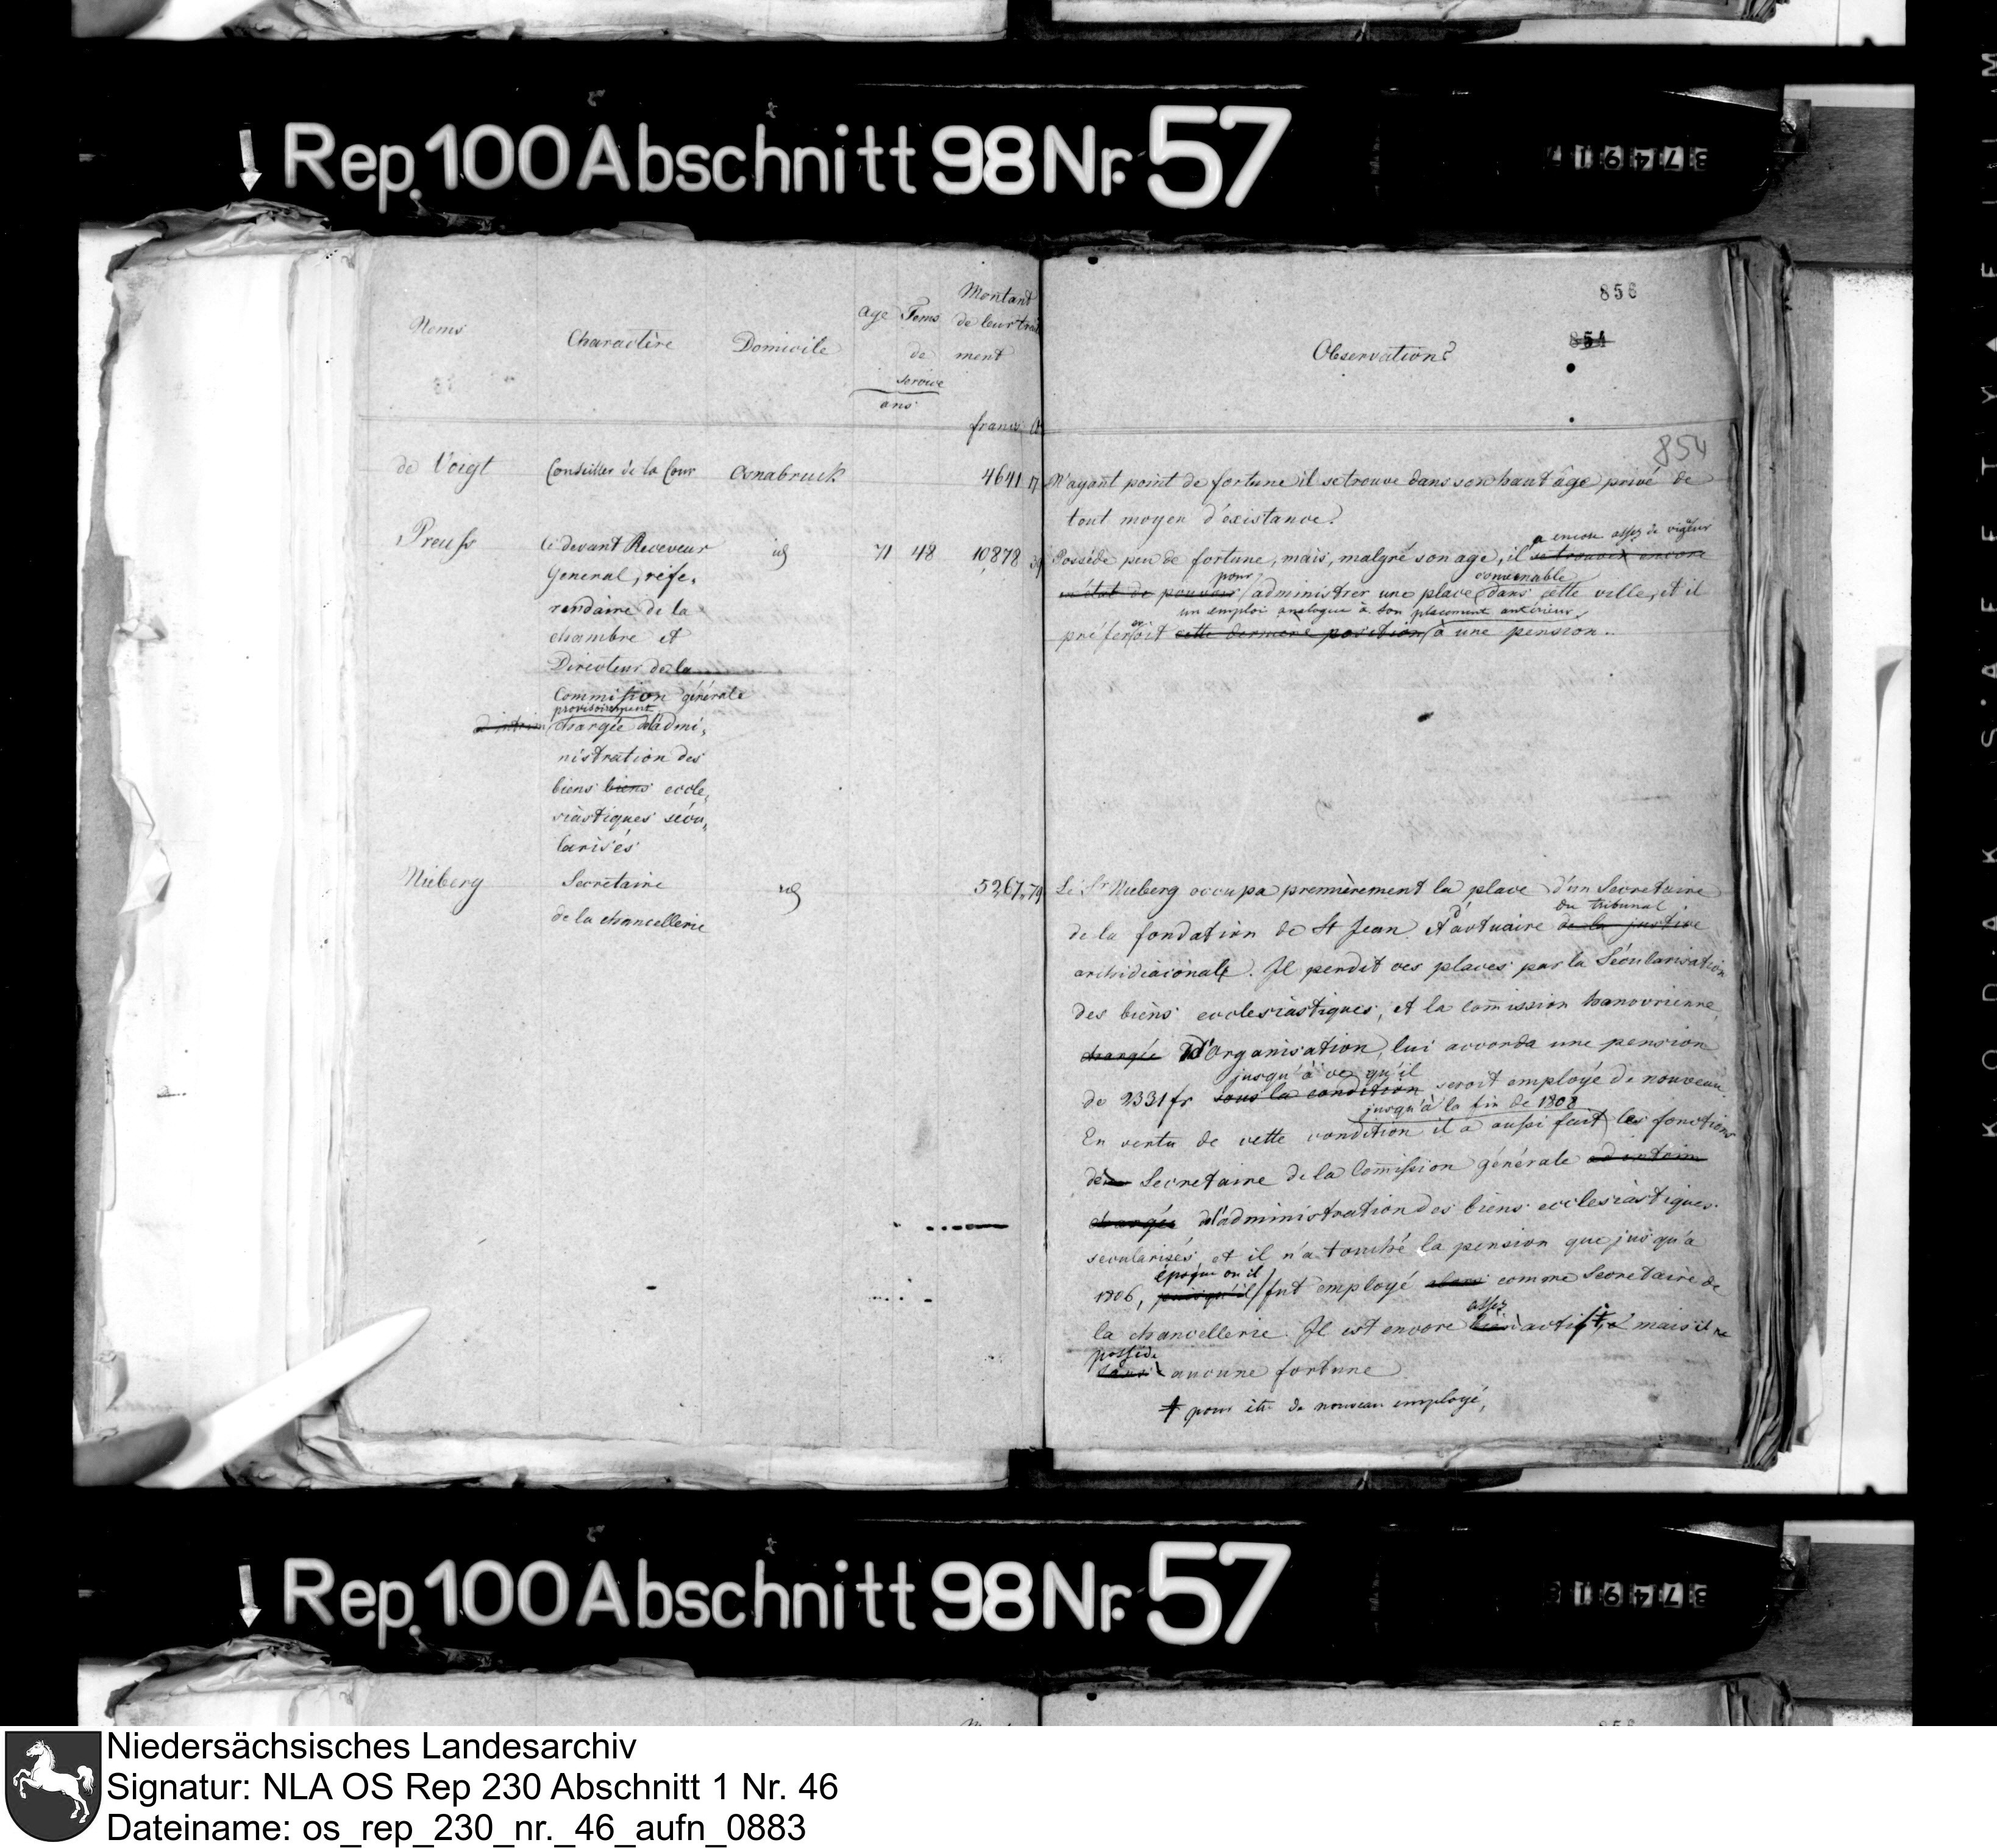 Rep. 100 Abschnitt 98 Nr. 57
856
854
854
Noms
Charactère
Domicile
age
Tems de service
ans
Montant de leur traitement
francs
Observations
de Voigt
Conseiller de la Cour
Osnabruck
4641 17
N'ayant point de fortune il se trouve dans son haut âge privé de
tout moyen d'existance.
Preuss
Ci devant Receveur
General, réfe,
rendaire de la
chambre et
Directeur de la
Commission générale
provisoirement
ad interim chargée d'admi,
nistration des
biens biens eccle,
siastiques sécu,
larisés
id
71
48
10,878
a encore assez de vigueur
Possède peu de fortune, mais, malgré son age, il se trouve encore
pour convenable
en état de pouvoir administrer une place dans cette ville, et il
un emploi analogue à son placement antérieur
préferoit cette derniere position à une pension.
Nieberg
Secretaire
de la chancellerie
id
5267 79
Le Sr Nieberg occupa premièrement la place d'un Secretaire
du tribunal
de la fondation de St Jean et d'actuaire de la justice
archidiaconale. Il perdit ces places par la Sécularisation
des biens ecclesiastiques, et la commission hanovrienne
chargée d'Organisation, lui accorda une pension
jusqu'à ce qu'il
de 2331 fr sous la condition seroit employé de nouveau.
jusqu'à la fin de 1808
En vertu de cette condition il a aussi fait les fonctions
de Secretaire de la Comission générale ad interim
chargée d'administration des biens ecclesiastiques
secularisés et il n'a touché la pension que jusqu'a
époque ou il
1806, puisqu'il fut employé alors comme Secretaire de
assez
la chancellerie. Il est encore bien actif + mais il ne
possede
sans aucune fortune
+ pour être de nouveau employé,
Rep. 100 Abschnitt 98 Nr. 57
Niedersächsisches Landesarchiv
Signatur: NLA OS Rep 230 Abschnitt 1 Nr. 46
Dateiname: os_rep_230_nr._46_aufn_0883